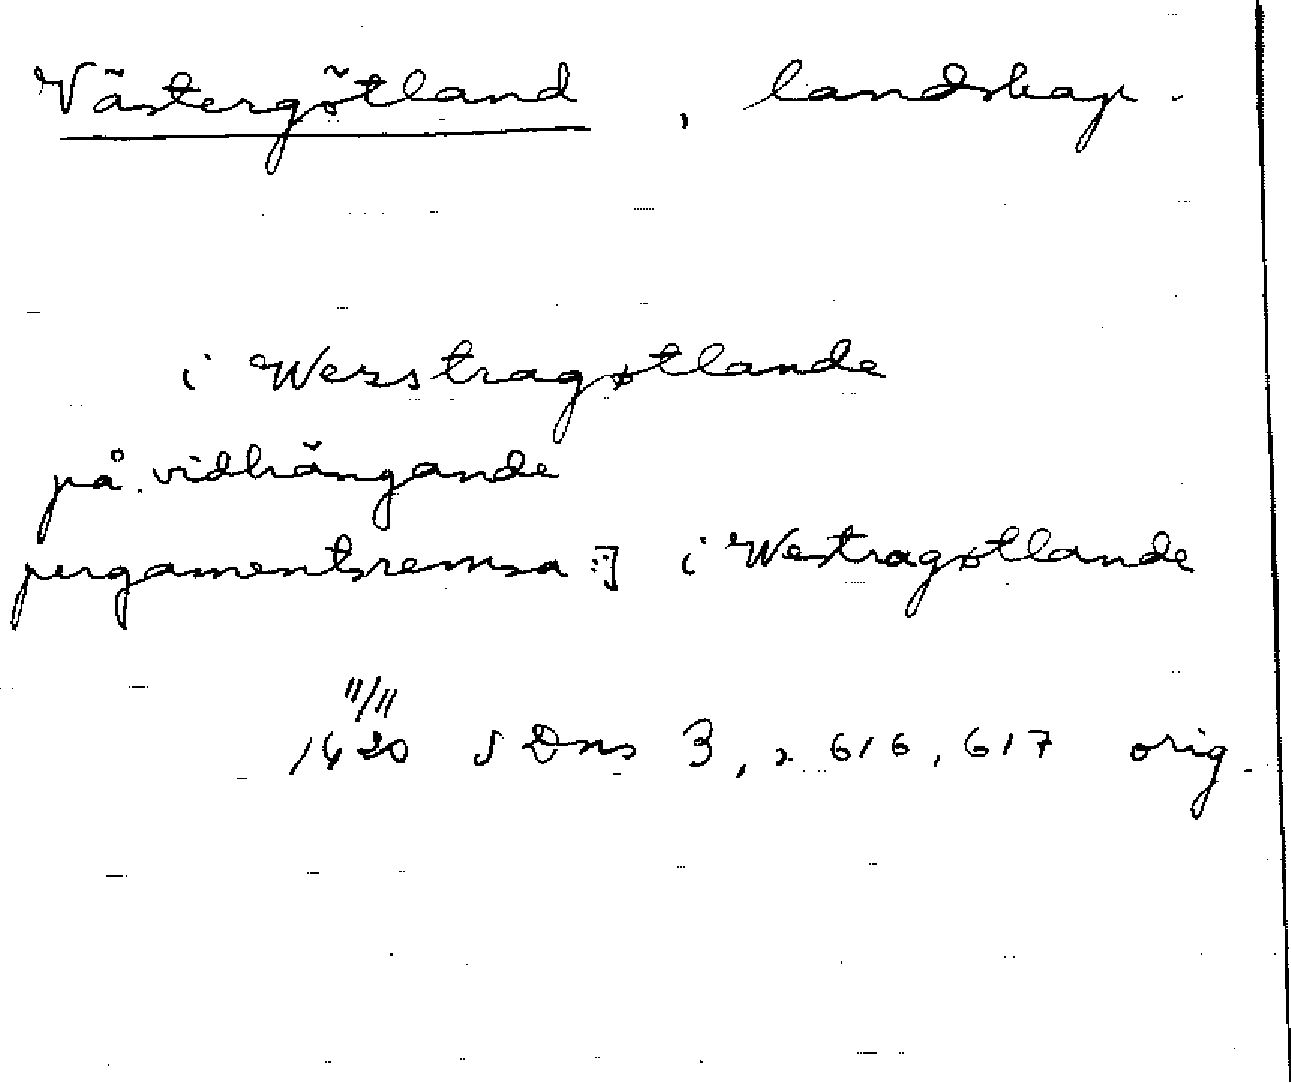 Västergötland, landskap.
i Wesstragøtlande
på vidhängande
pergamentsremsa :] i Westragøtlande
11/11
1420 SDns 3, s 616, 617 orig.